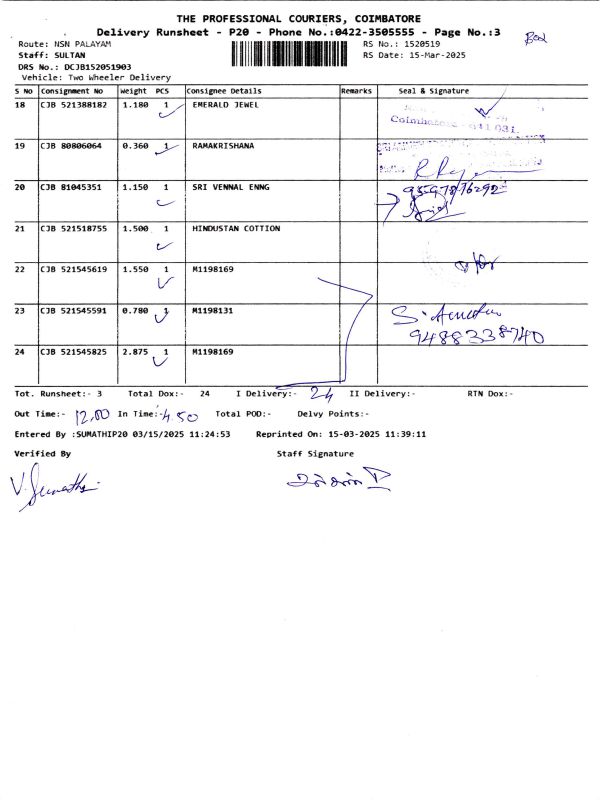 THE PROFESSIONAL COURIERS, COIMBATORE
Delivery Runsheet - P20 - Phone No.:0422-3505555 - Page No.:3
Route: NSN PALAYAM RS No.: 1520519
Staff: SULTAN RS Date: 15-Mar-2025
DRS No.: DCJB152051903
Vehicle: Two Wheeler Delivery
S No Consignment No Weight PCS Consignee Details Remarks Seal & Signature
18 CJB 521388182 1.180 1 EMERALD JEWEL
Coimbatore 641 031.
19 CJB 80806064 0.360 1 RAMAKRISHANA
20 CJB 81045351 1.150 1 SRI VENNAL ENNG
21 CJB 521518755 1.500 1 HINDUSTAN COTTION
22 CJB 521545619 1.550 1 M1198169
23 CJB 521545591 0.780 1 M1198131
9488338740
24 CJB 521545825 2.875 1 M1198169
Tot. Runsheet:- 3 Total Dox:- 24 I Delivery:- 24 II Delivery:- RTN Dox:-
Out Time:- 12.00 In Time:- 4.50 Total POD:- Delvy Points:-
Entered By :SUMATHIP20 03/15/2025 11:24:53 Reprinted On: 15-03-2025 11:39:11
Verified By Staff Signature
V. Sumathi